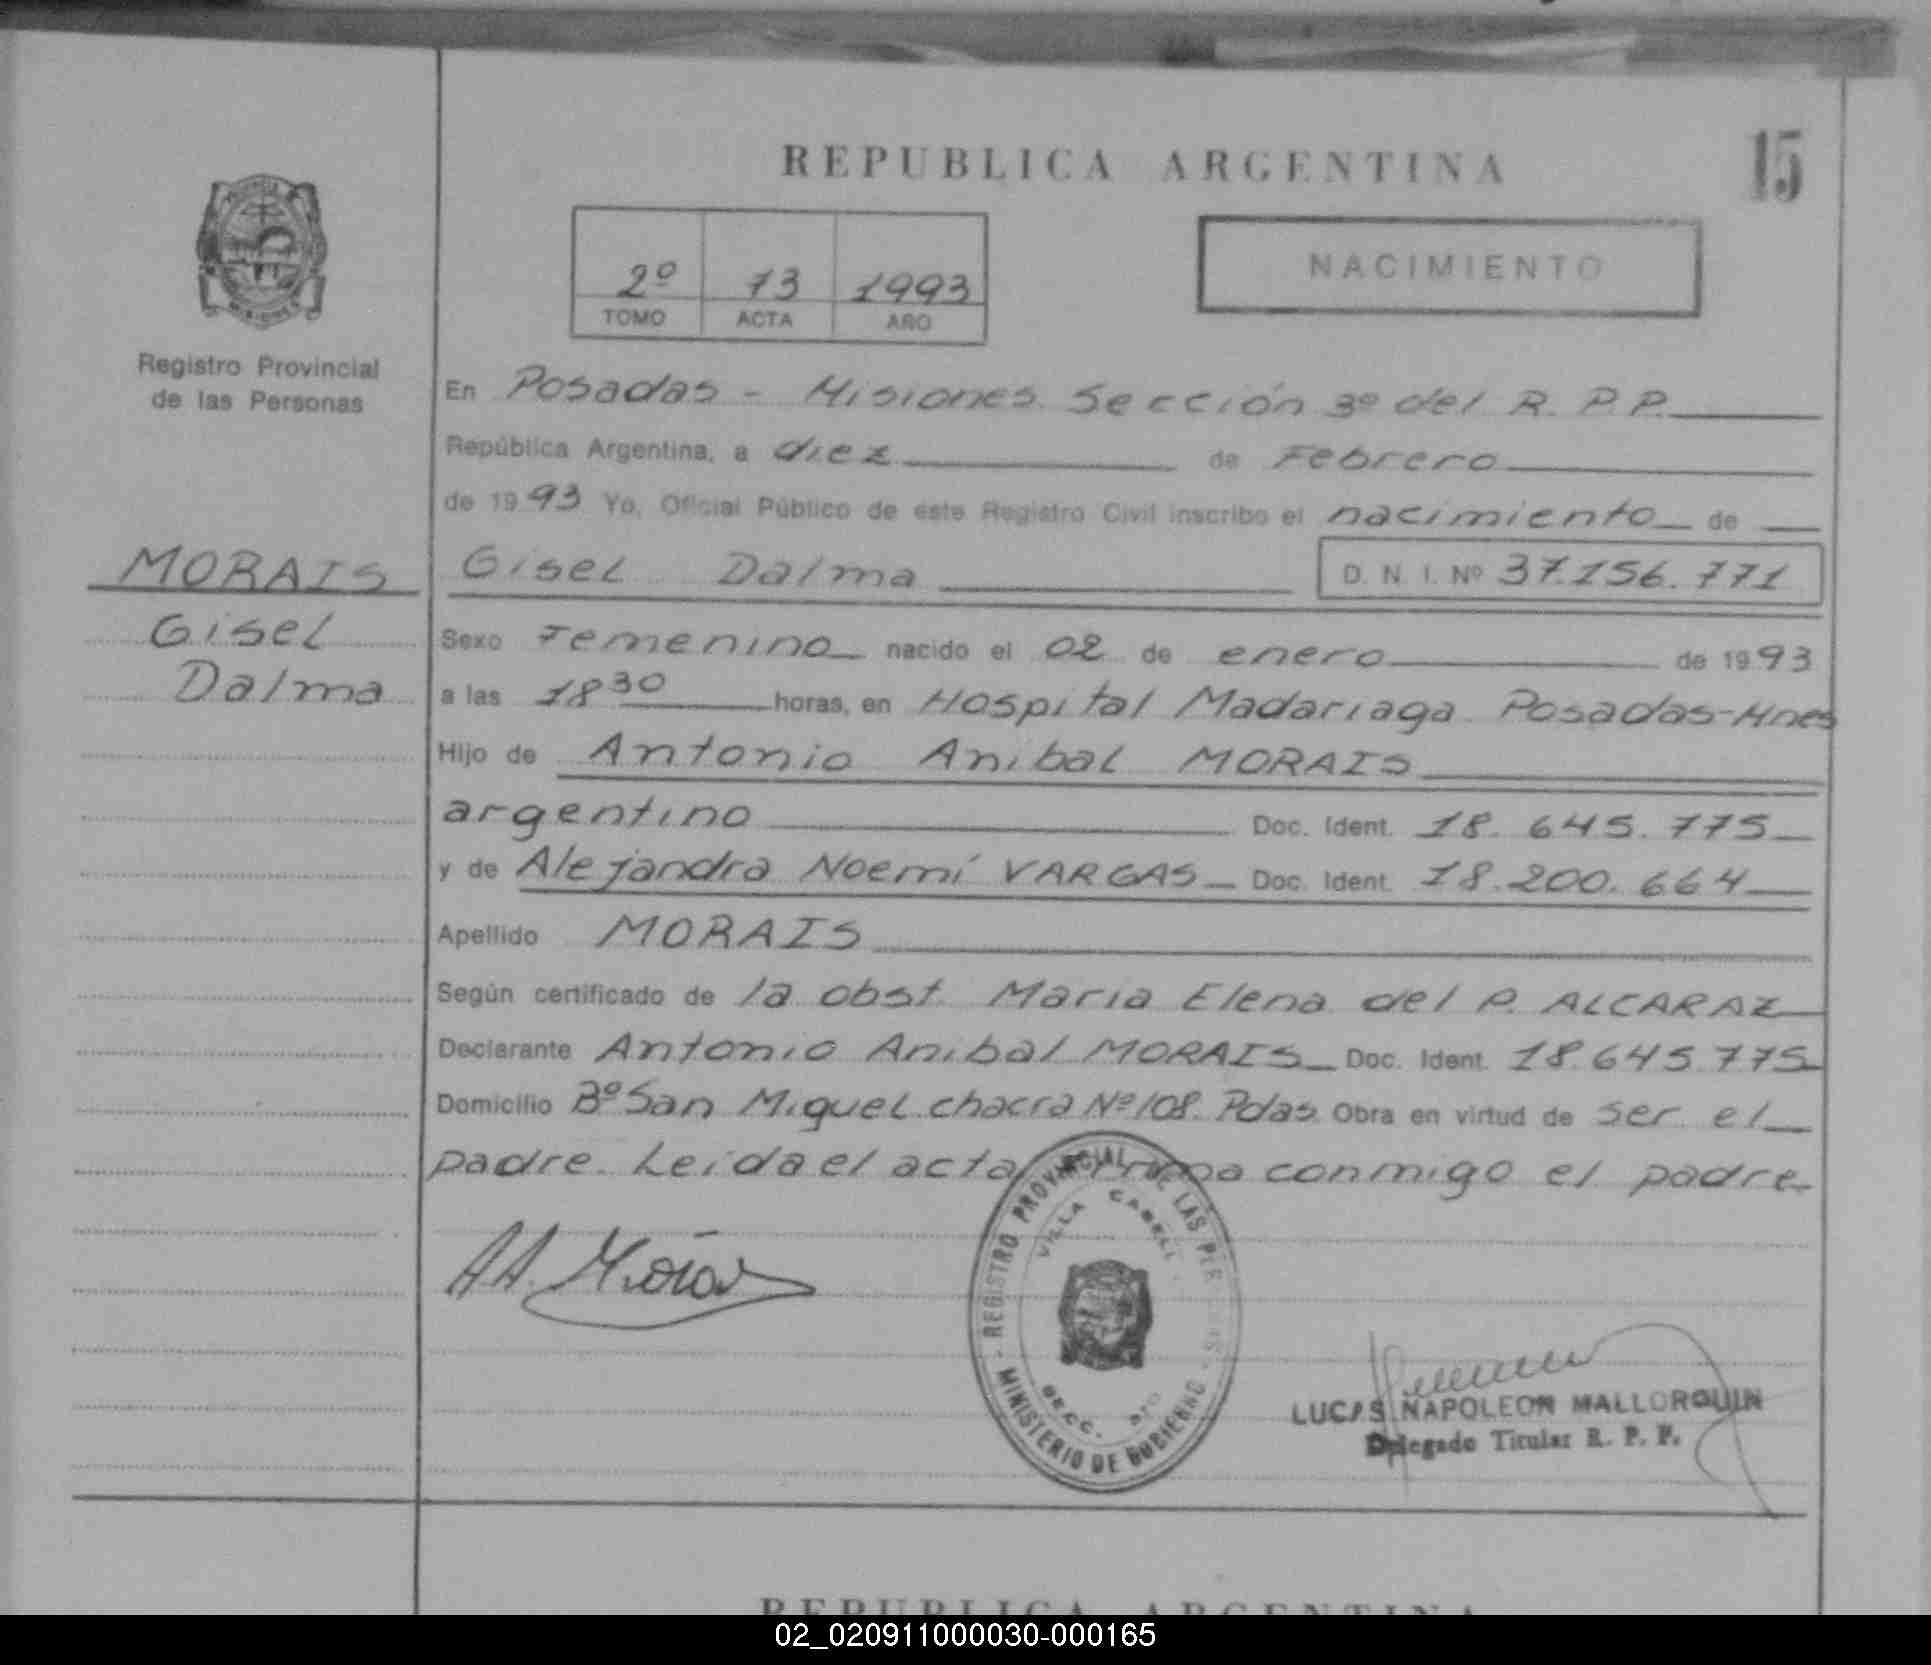 15
REPUBLICA ARGENTINA
NACIMIENTO
2º 73 1993
TOMO ACTA AÑO
Registro Provincial
de las Personas
En Posadas - Misiones Sección 3º del R. P. P.
República Argentina, a diez de Febrero
de 1993 Yo, Oficial Público de este Registro Civil inscribo el nacimiento de
MORAIS Gisel Dalma D. N. I. Nº 37.156.771
Gisel Sexo Femenino nacido el 02 de enero de 1993
Dalma a las 18 30 horas, en Hospital Madariaga Posadas-Mnes
Hijo de Antonio Anibal MORAIS
argentino Doc. Ident. 18.645.775
y de Alejandra Noemí VARGAS Doc. Ident. 18.200.664
Apellido MORAIS
Según certificado de la obst. Maria Elena del P. ALCARAZ
Declarante Antonio Anibal MORAIS Doc. Ident. 18.645.775
Domicilio Bº San Miguel chacra Nº 108. Pdas. Obra en virtud de ser el
padre. Leida el acta firma conmigo el padre
REGISTRO PROVINCIAL DE LAS PERSONAS
VILLA CABELLO
SECC.
MINISTERIO DE GOBIERNO
LUCAS NAPOLEON MALLORQUIN
Delegado Titular R. P. P.
REPUBLICA ARGENTINA
02_020911000030-000165